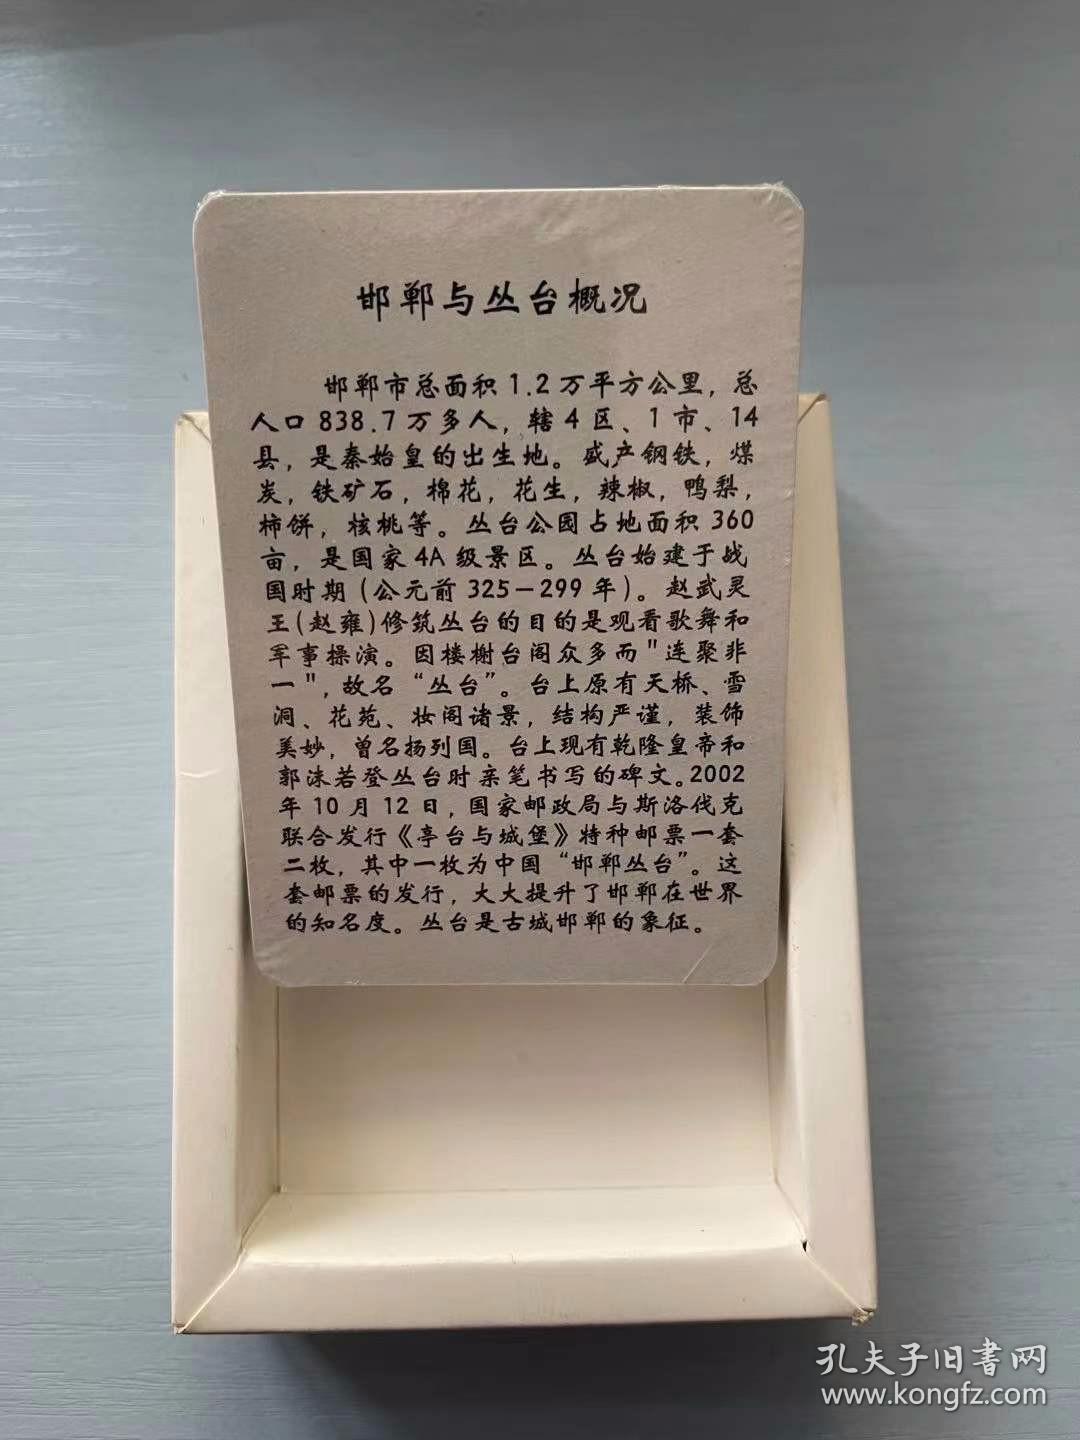 邯郸与丛台概况
邯郸市总面积1.2万平方公里，总
人口838.7万多人，辖4区、1市、14
县，是秦始皇的出生地。盛产钢铁，煤
炭，铁矿石，棉花，花生，辣椒，鸭梨，
柿饼，核桃等。丛台公园占地面积360
亩，是国家4A级景区。丛台始建于战
国时期（公元前325—299年）。赵武灵
王(赵雍)修筑丛台的目的是观看歌舞和
军事操演。因楼榭台阁众多而"连聚非
一"，故名“丛台”。台上原有天桥、雪
洞、花苑、妆阁诸景，结构严谨，装饰
美妙，曾名扬列国。台上现有乾隆皇帝和
郭沫若登丛台时亲笔书写的碑文。2002
年10月12日，国家邮政局与斯洛伐克
联合发行《亭台与城堡》特种邮票一套
二枚，其中一枚为中国“邯郸丛台”。这
套邮票的发行，大大提升了邯郸在世界
的知名度。丛台是古城邯郸的象征。
孔夫子旧书网
www.kongfz.com